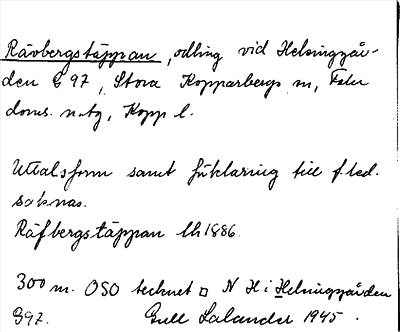 Rävbergstäppan, odling vid Helsinggår-
den B 97, Stora Kopparbergs sn, Falu
doms. ntg, Kopp l.
Uttalsform samt förklaring till f. led.
saknas.
Räfbergstäppan lh 1886.
300 m. OSO tecknet □ N H i Helsinggården
B97. Gull Salander 1945.